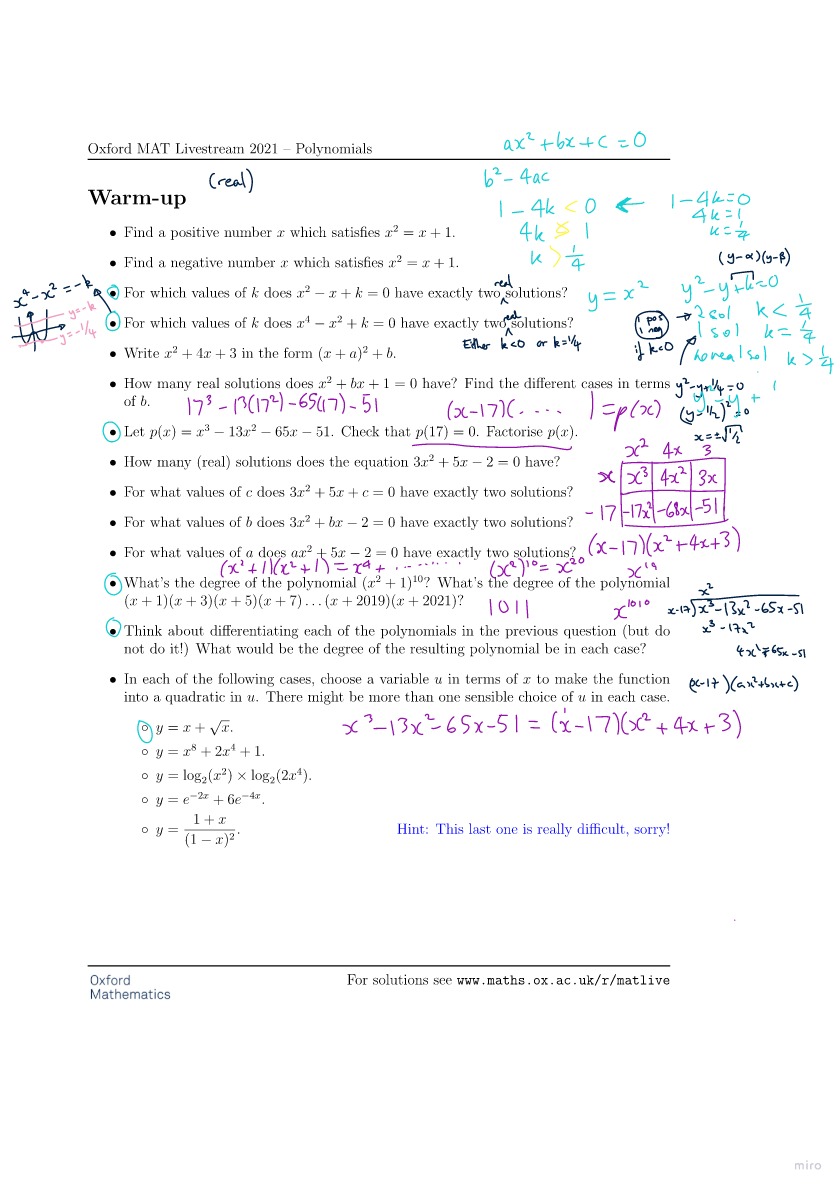 Oxford MAT Livestream 2021 – Polynomials
ax² + bx + c = 0
Warm-up
(real)
b² - 4ac
1 - 4k < 0 ← 1 - 4k = 0
4k > 1
4k = 1
k > 1/4
k = 1/4
• Find a positive number x which satisfies x² = x + 1.
• Find a negative number x which satisfies x² = x + 1.
(y-α)(y-β)
x⁴ - x² = -k
y = -k
y = -1/4
real
• For which values of k does x² − x + k = 0 have exactly two solutions?
y = x²
y² - y + k = 0
real
• For which values of k does x⁴ − x² + k = 0 have exactly two solutions?
1 pos
1 neg
if k<0
→ 2 sol k < 1/4
1 sol k = 1/4
no real sol k > 1/4
Either k<0 or k=1/4
• Write x² + 4x + 3 in the form (x + a)² + b.
• How many real solutions does x² + bx + 1 = 0 have? Find the different cases in terms
of b.
y² - y + 1/4 = 0
(y - 1/2)² = 0
x = ±√1/2
17³ - 13(17²) - 65(17) - 51
(x-17)(.... ) = p(x)
• Let p(x) = x³ − 13x² − 65x − 51. Check that p(17) = 0. Factorise p(x).
x² 4x 3
x x³ 4x² 3x
-17 -17x² -68x -51
(x-17)(x²+4x+3)
• How many (real) solutions does the equation 3x² + 5x − 2 = 0 have?
• For what values of c does 3x² + 5x + c = 0 have exactly two solutions?
• For what values of b does 3x² + bx − 2 = 0 have exactly two solutions?
• For what values of a does ax² + 5x − 2 = 0 have exactly two solutions?
(x²+1)(x²+1) = x⁴ + ........
(x²)¹⁰ = x²⁰
x¹⁹
• What's the degree of the polynomial (x² + 1)¹⁰? What's the degree of the polynomial
(x + 1)(x + 3)(x + 5)(x + 7) . . . (x + 2019)(x + 2021)?
1011
x¹⁰¹⁰
x²
x-17)x³-13x²-65x-51
x³ - 17x²
4x²-65x-51
(x-17)(ax²+bx+c)
• Think about differentiating each of the polynomials in the previous question (but do
not do it!) What would be the degree of the resulting polynomial be in each case?
• In each of the following cases, choose a variable u in terms of x to make the function
into a quadratic in u. There might be more than one sensible choice of u in each case.
◦ y = x + √x.
x³ - 13x² - 65x - 51 = (x-17)(x² + 4x + 3)
◦ y = x⁸ + 2x⁴ + 1.
◦ y = log₂(x²) × log₂(2x⁴).
◦ y = e⁻²ˣ + 6e⁻⁴ˣ.
◦ y = (1 + x)/(1 − x)².
Hint: This last one is really difficult, sorry!
Oxford
Mathematics
For solutions see www.maths.ox.ac.uk/r/matlive
miro